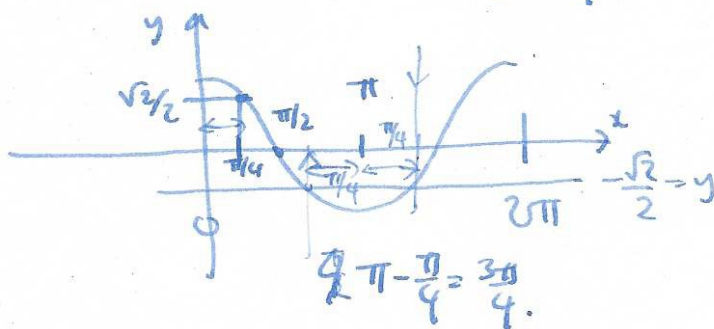 y
√2/2
π
π/2
π/4
x
π/4
π/4
0
2π
-√2/2 = y
π - π/4 = 3π/4.